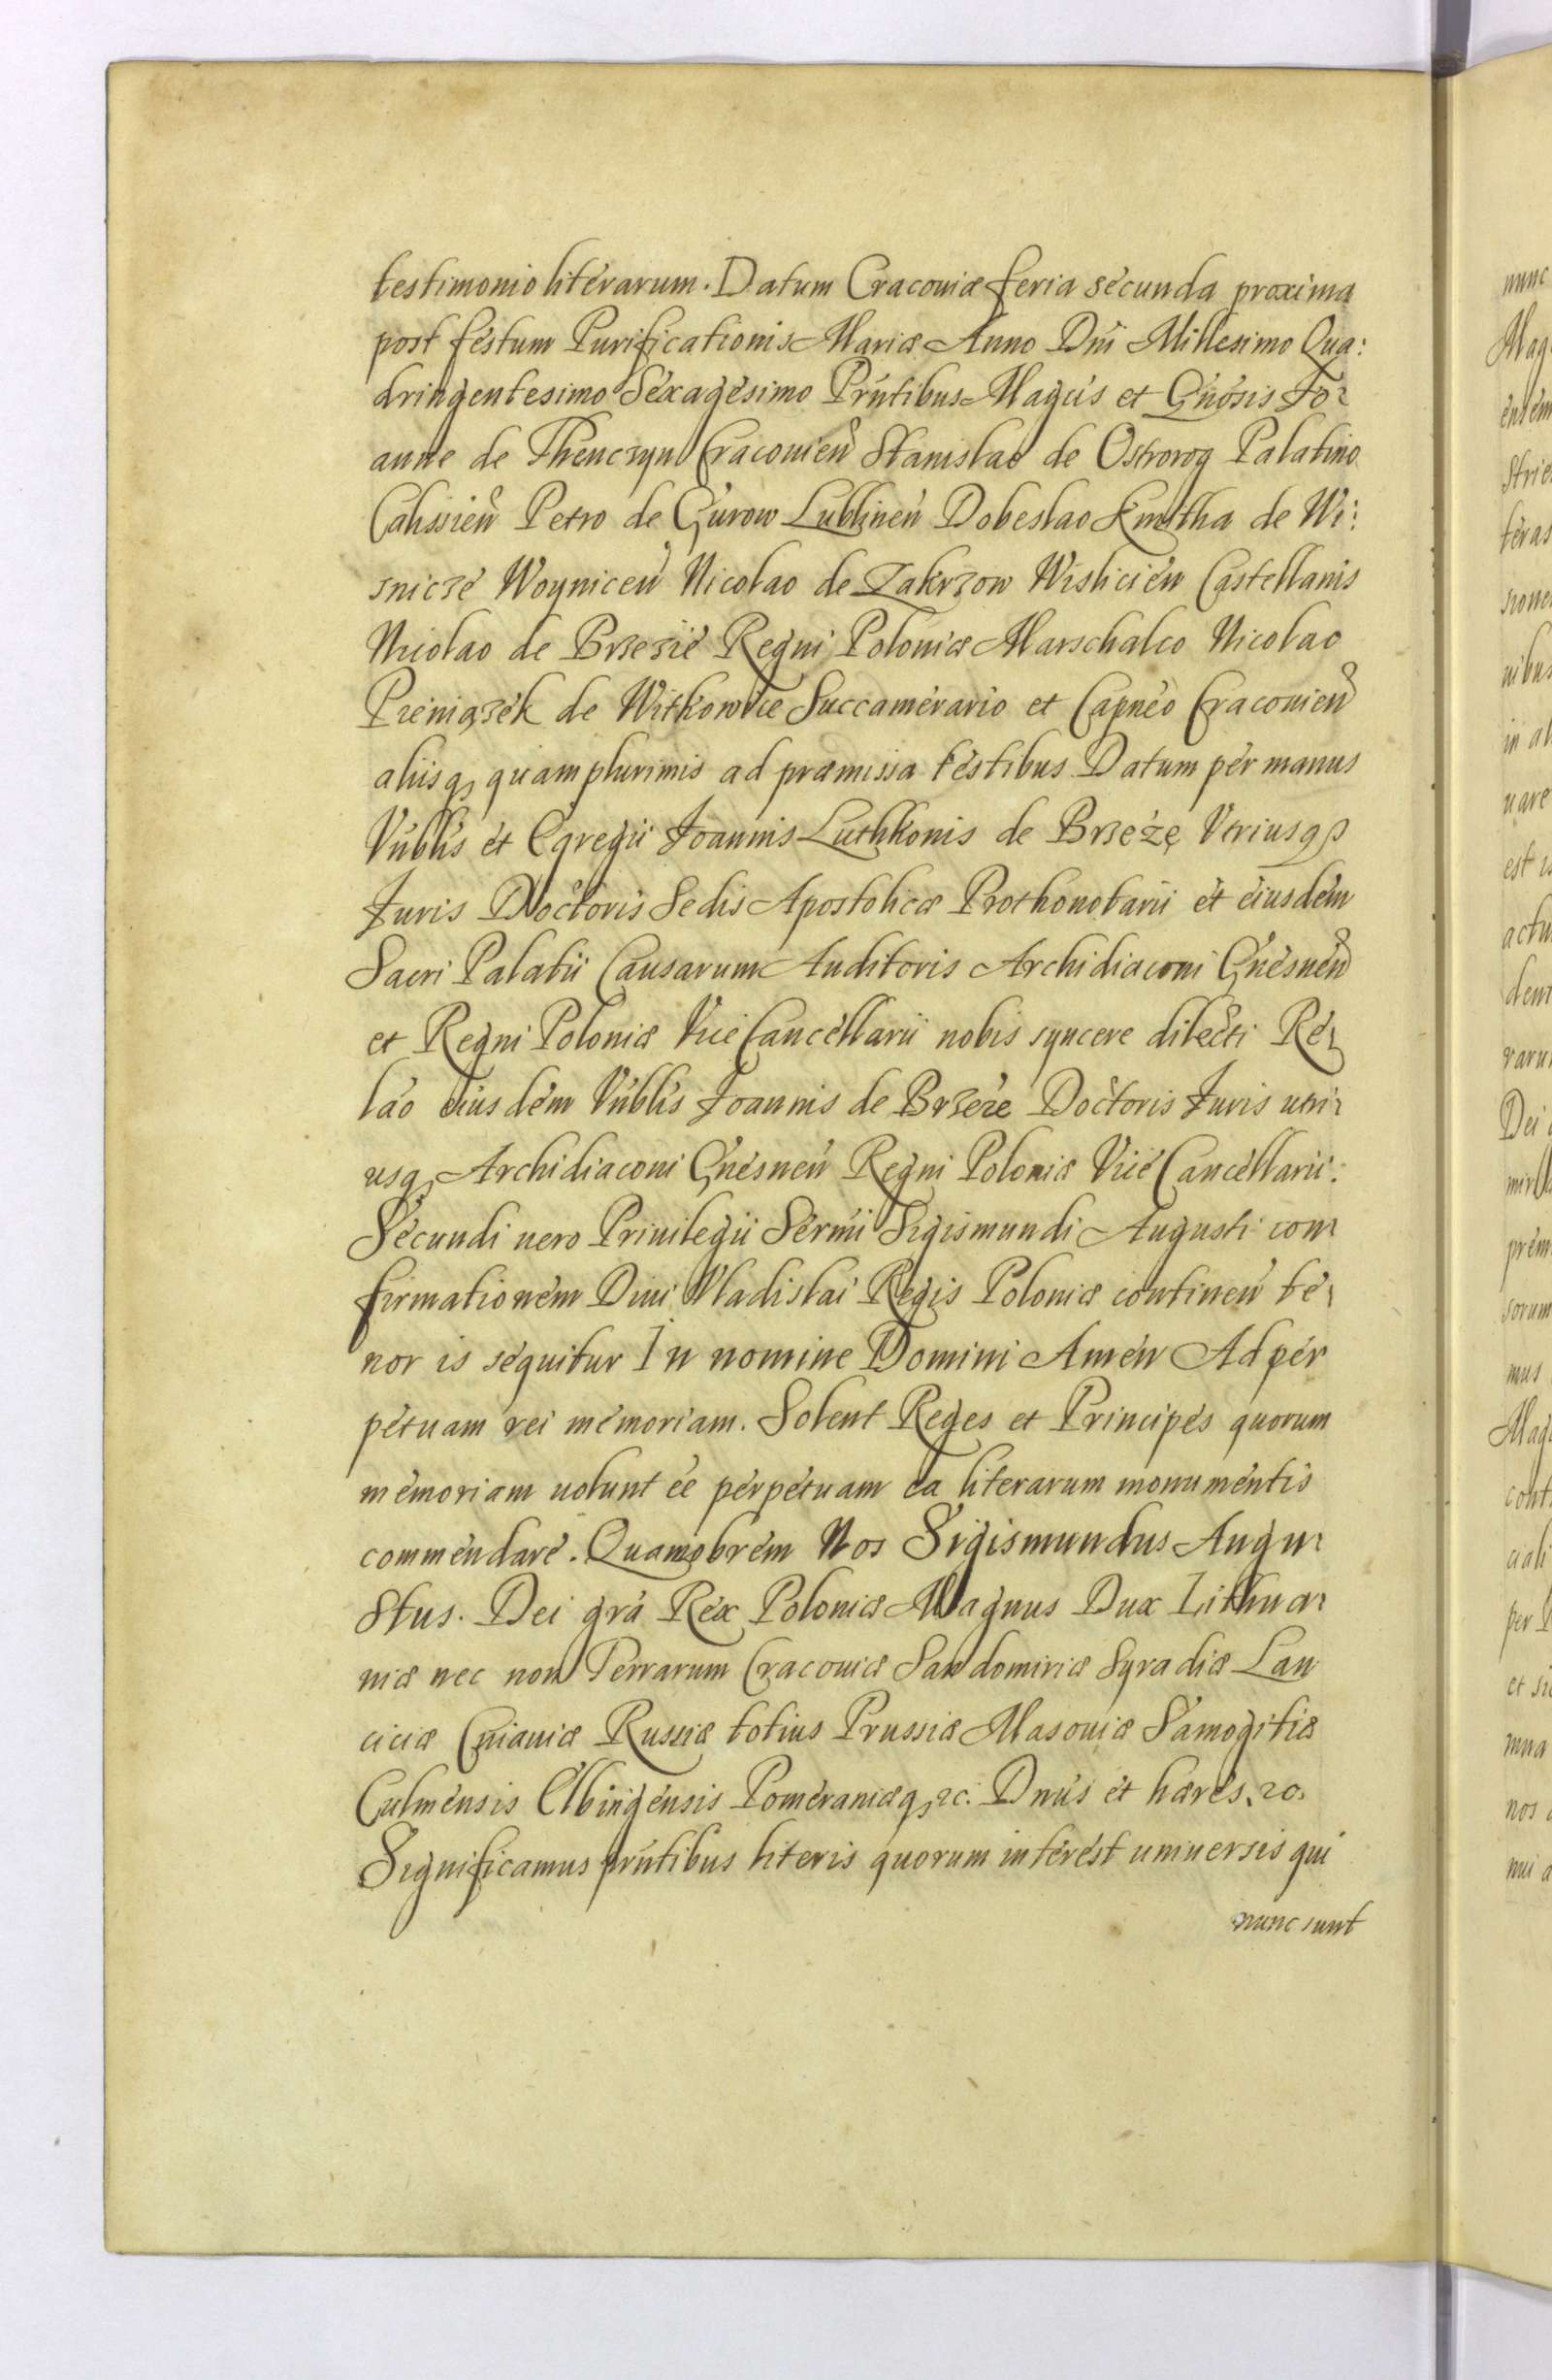 testimonio literarum. Datum Cracouiæ feria secunda proxima
post festum Purificationis Mariæ Anno Dni Millesimo Qua:
dringentesimo Sexagesimo Prntibus Magcis et Gnosis Jo-
anne de Thenczyn Cracouien Stanislao de Ostrorog Palatino
Calissien Petro de Gurow Lublinen Dobeslao Kmitha de Wi:
snicze Woynicen Nicolao de Zakrzow Wislicien Castellanis
Nicolao de Brzezie Regni Poloniæ Marschalco Nicolao
Pieniązek de Witkowice Succamerario et Capneo Cracouien
aliisq, quamplurimis ad præmissa testibus Datum per manus
Vnblis et Egregii Joannis Luthkonis de Brzezę Vtriusq,
Juris Doctoris Sedis Apostolicæ Prothonotarii et eiusdem
Sacri Palatii Causarum Auditoris Archidiaconi Gnesnen
et Regni Poloniæ Vice Cancellarii nobis syncere dilecti Re-
lao eiusdem Vnblis Joannis de Brzeze Doctoris Juris utri-
usq, Archidiaconi Gnesnen Regni Poloniæ Vice Cancellarii.
Secundi uero Priuilegii Sermi Sigismundi Augusti con-
firmationem Diui Vladislai Regis Poloniæ continen te-
nor is sequitur In nomine Domini Amen Ad per
petuam rei memoriam. Solent Reges et Principes quorum
memoriam uolunt ee perpetuam ea literarum monumentis
commendare. Quamobrem Nos Sigismundus Augu-
stus. Dei gra Rex Poloniæ Magnus Dux Lithua-
niæ nec non Terrarum Cracouiæ Sandomiriæ Syradiæ Lan
ciciæ Cuiauiæ Russiæ totius Prussiæ Masouiæ Samogitiæ
Culmensis Elbingensis Pomeraniæq, &c. Dnus et hæres. &c.
Significamus prntibus literis quorum interest uniuersis qui
nunc sunt